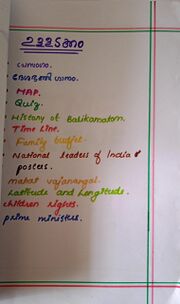 ഉള്ളടക്കം
ദേശീയഗാനം.
MAP.
Quiz.
History of Balikamatom.
Time Line.
Family budget.
National leaders of India
posters.
mahat vajanangal.
Latitude and Longitude.
children rights.
prime ministers.